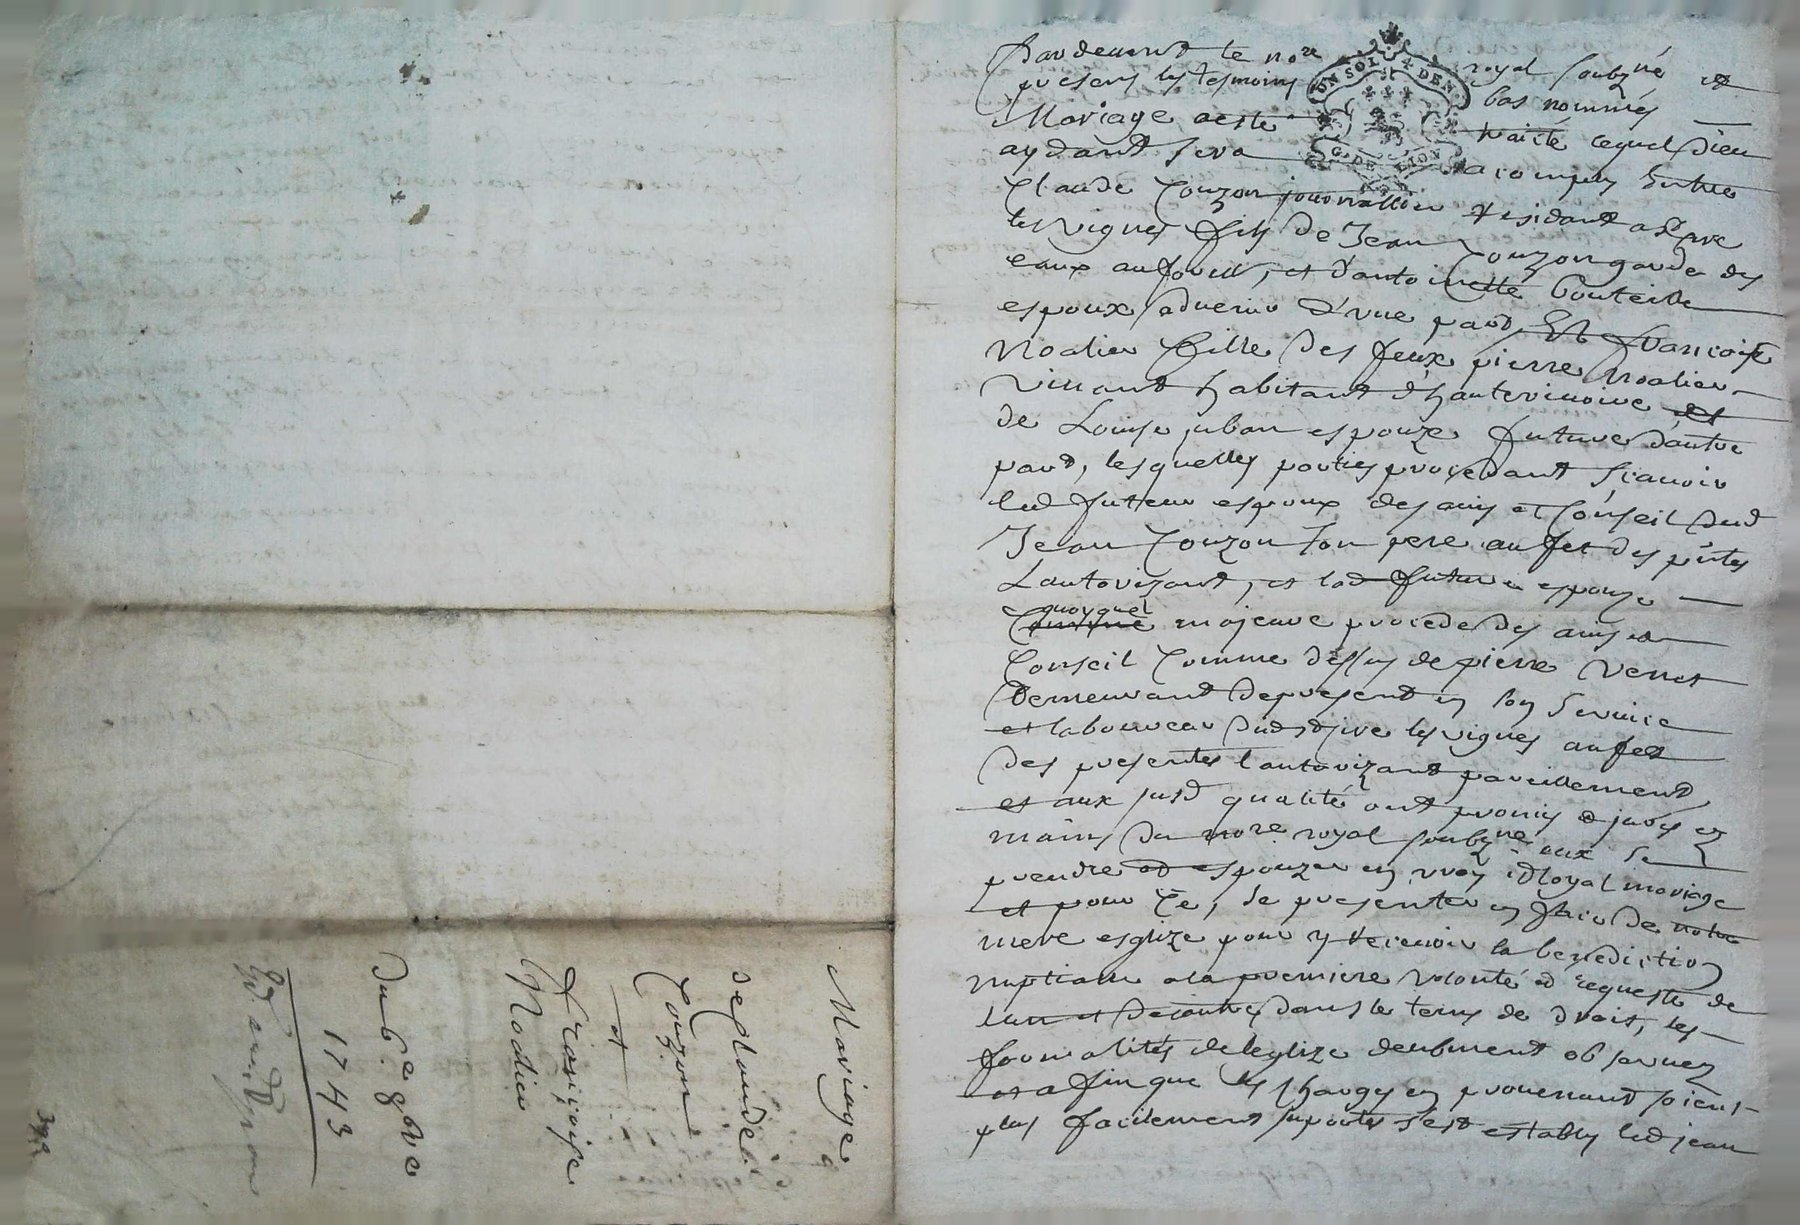 Pardevant le no.re royal soubzné et
presens les tesmoins bas nommés
Mariage a esté traicté lequel Dieu
aydant sera acomply Entre
Claude Couzon journallier residant a St Cire
les vignes fils de Jean Couzon garde des
eaux au forest, et d'antoinette bouteille
espoux advenir d'une part, Et françoise
Noalier fille des feux pierre Noalier
vivant habitant d'hauterivoire et
de Louise juban espouze future d'autre
part, lesquelles parties procedant sçavoir
led futteur espoux des avis et Conseil dud
Jean Couzon son pere au fet des p'ntes
L'autorizant, et lad future espouze
quoyquel
majeure procede des avis et
Conseil Comme dessus de pierre Verret
Demeurant de present en son service
et laboureur dud St Cire les vignes au fet
des presentes l'autorizant pareillement
et aux susd qualité ont promis et jurés ez
mains du no.re royal soubzné eux se
prendre et espouzer en vray et loyal mariage
et pour Ce, se presenter en face de notre
mere esglize pour y recevoir la benediction
nuptialle a la premiere volonté et requeste de
l'un et de l'autre dans le tems de droit, les
formalités de leglize deubment observez
et afin que les Charges en provenant soient
plus facilement suportés s'est estably led jean
Mariage
de Claude
Couzon
et
françoise
Noalier
Du 6.e 9bre
1743